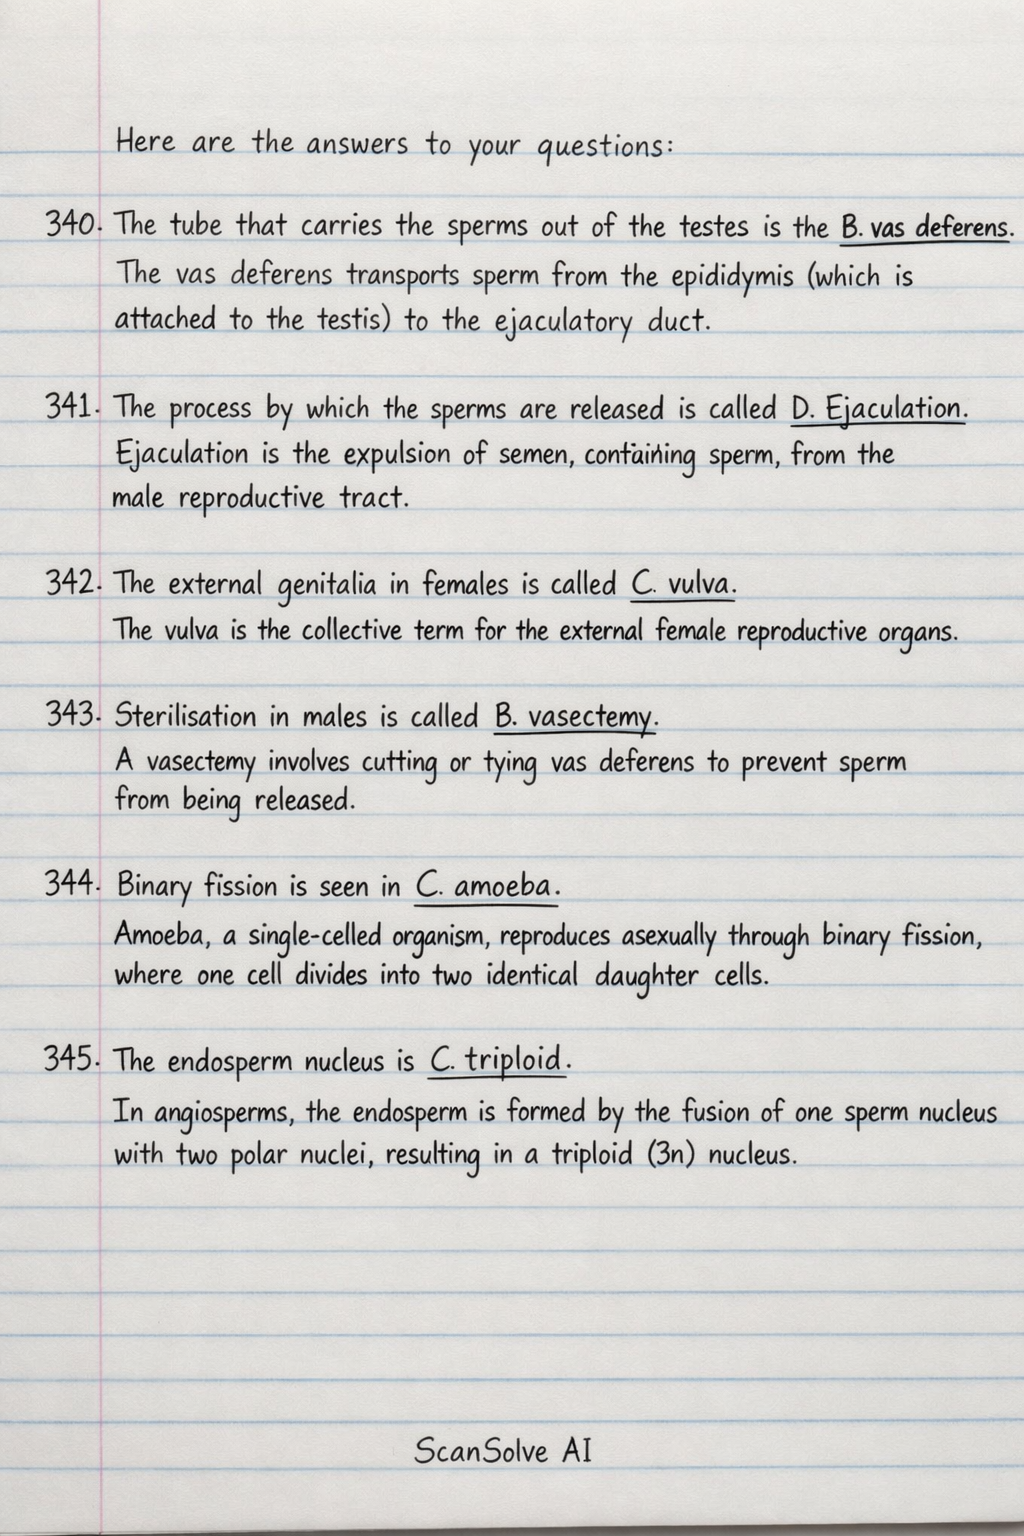 Here are the answers to your questions:
340. The tube that carries the sperms out of the testes is the B. vas deferens.
The vas deferens transports sperm from the epididymis (which is
attached to the testis) to the ejaculatory duct.
341. The process by which the sperms are released is called D. Ejaculation.
Ejaculation is the expulsion of semen, containing sperm, from the
male reproductive tract.
342. The external genitalia in females is called C. vulva.
The vulva is the collective term for the external female reproductive organs.
343. Sterilisation in males is called B. vasectemy.
A vasectemy involves cutting or tying vas deferens to prevent sperm
from being released.
344. Binary fission is seen in C. amoeba.
Amoeba, a single-celled organism, reproduces asexually through binary fission,
where one cell divides into two identical daughter cells.
345. The endosperm nucleus is C. triploid.
In angiosperms, the endosperm is formed by the fusion of one sperm nucleus
with two polar nuclei, resulting in a triploid (3n) nucleus.
ScanSolve AI